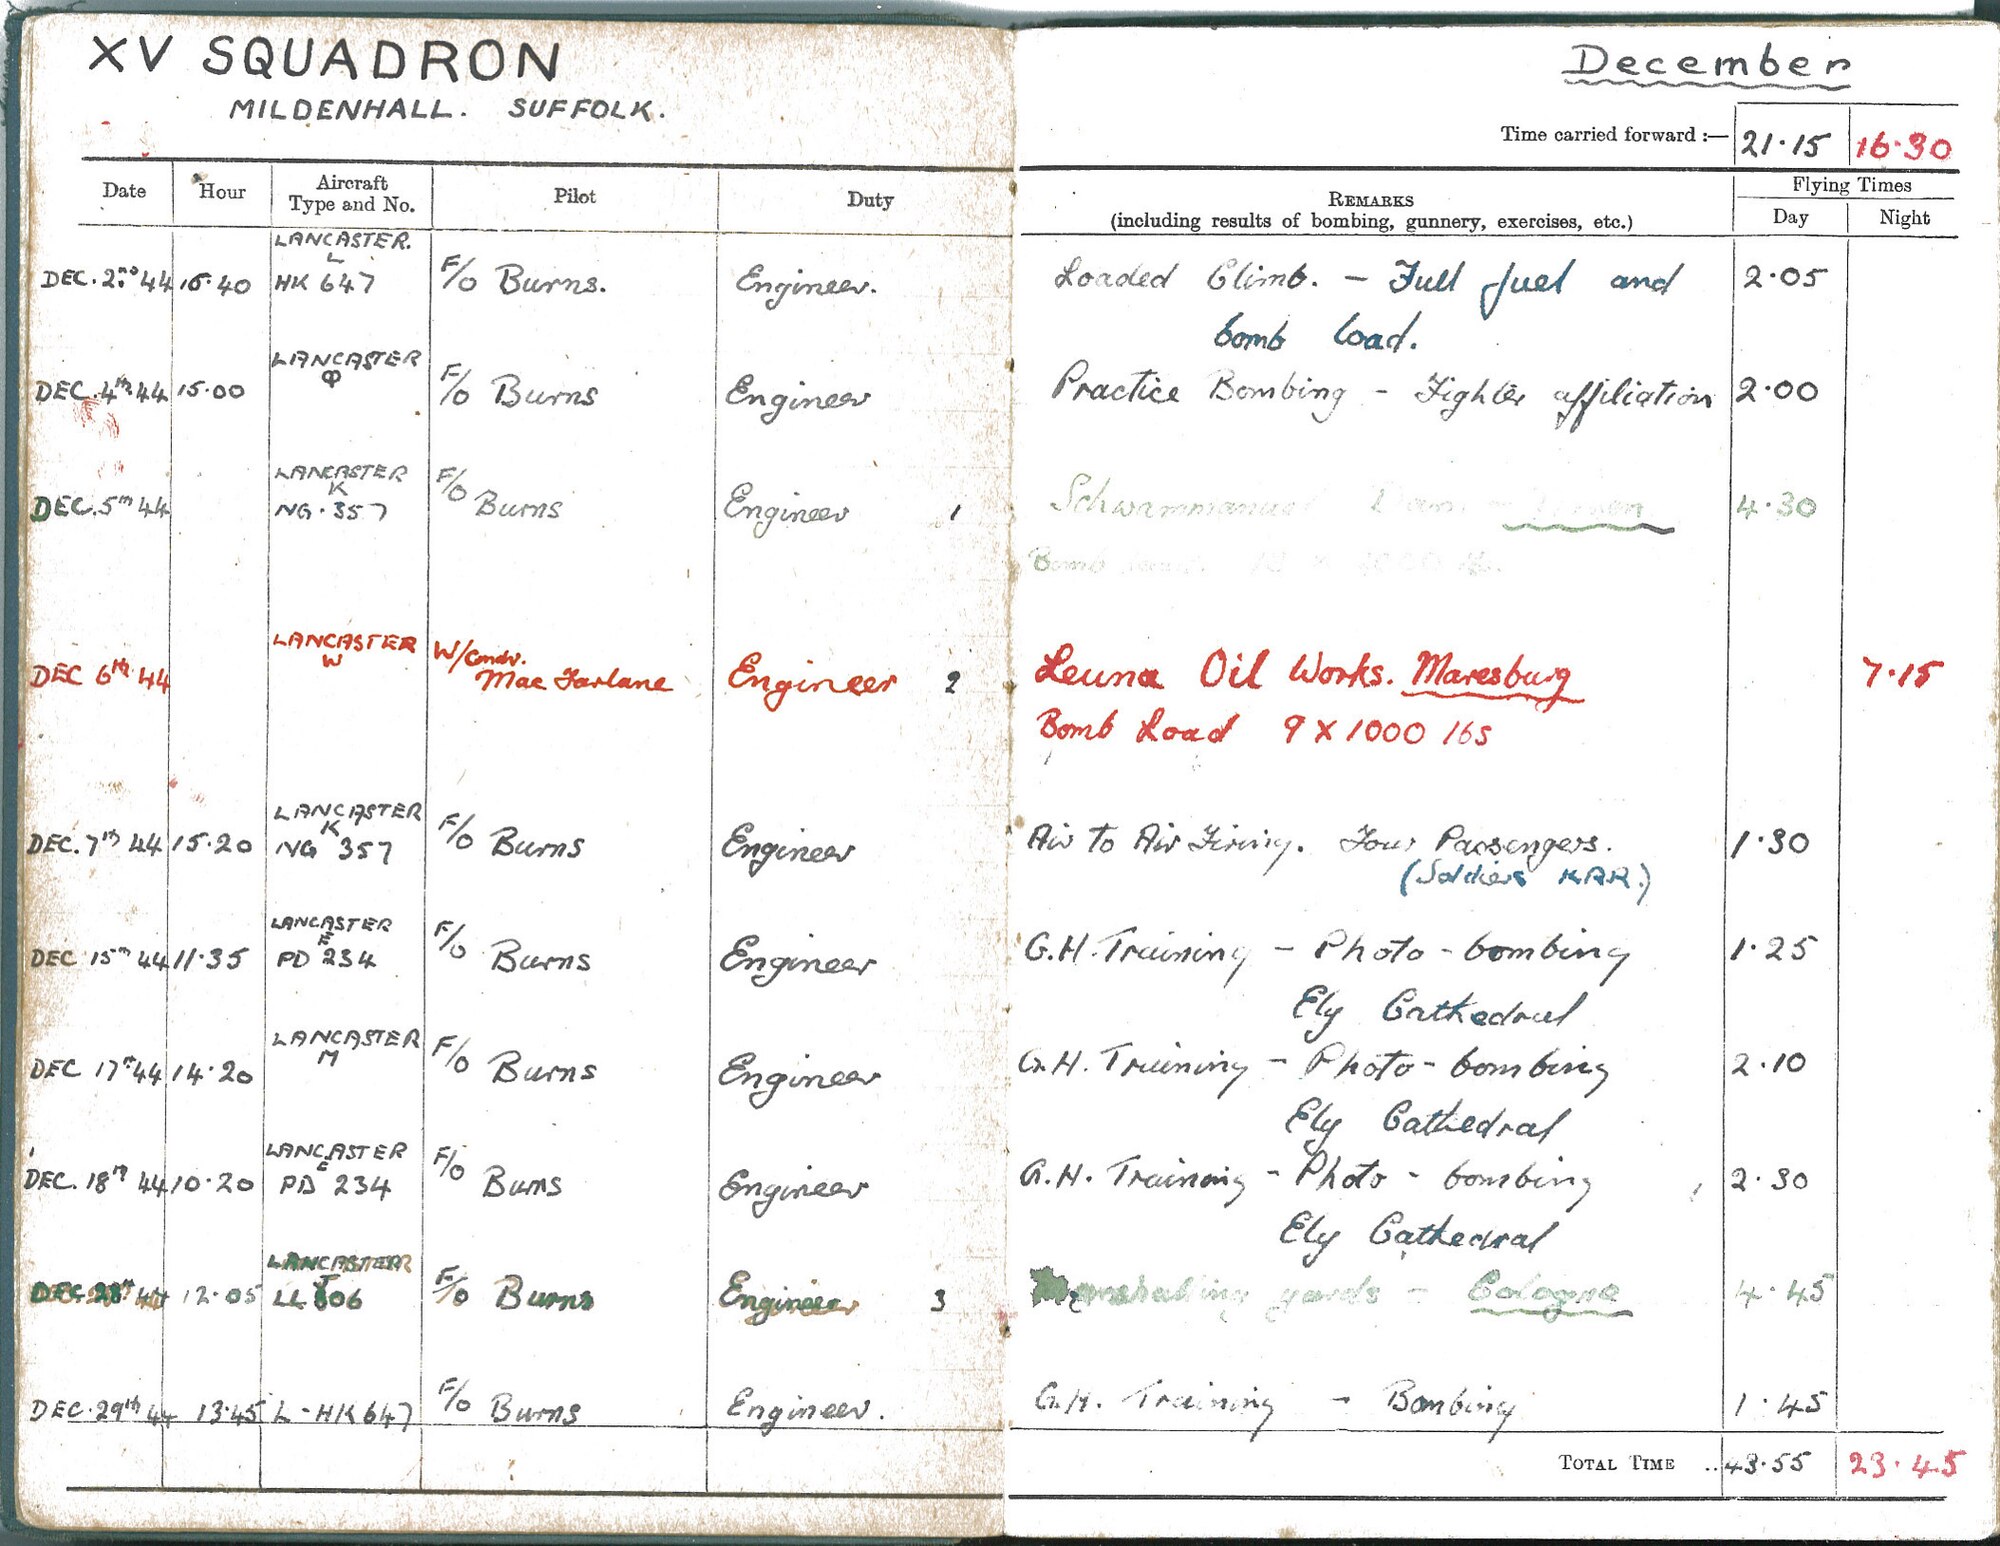 XV SQUADRON
MILDENHALL. SUFFOLK.
December
Time carried forward :— 21·15 16·30
Date Hour Aircraft Type and No. Pilot Duty REMARKS (including results of bombing, gunnery, exercises, etc.) Flying Times Day Night
LANCASTER.
L
DEC. 2nd 44 15·40 HK 647 F/O Burns. Engineer. Loaded Climb. — Full fuel and 2·05
bomb load.
LANCASTER
DEC. 4th 44 15·00 F/O Burns Engineer Practice Bombing - Fighter affiliation 2·00
LANCASTER
K
DEC. 5th 44 NG·357 F/O Burns Engineer 1 Schwammanuel Dam 4·30
Bomb
LANCASTER
W
DEC 6th 44 W/Cmdr. Mac Farlane Engineer 2 Leuna Oil Works. Maresburg 7·15
Bomb Load 9 X 1000 lbs
LANCASTER
K
DEC. 7th 44 15·20 NG 357 F/O Burns Engineer Air to Air Firing. Four Passengers. 1·30
(Soldiers K.A.R.)
LANCASTER
E
DEC 15th 44 11·35 PD 234 F/O Burns Engineer G.H. Training - Photo - bombing 1·25
Ely Cathedral
LANCASTER
M
DEC 17th 44 14·20 F/O Burns Engineer G.H. Training - Photo - bombing 2·10
Ely Cathedral
LANCASTER
E
DEC. 18th 44 10·20 PD 234 F/O Burns Engineer G.H. Training - Photo - bombing 2·30
Ely Cathedral
LANCASTER
DEC 28th 44 12·05 LL 806 F/O Burns Engineer 3 yards - Cologne 4·45
DEC. 29th 44 13·45 L - HK 647 F/O Burns Engineer. G.H. Training - Bombing 1·45
TOTAL TIME .. 43·55 23·45